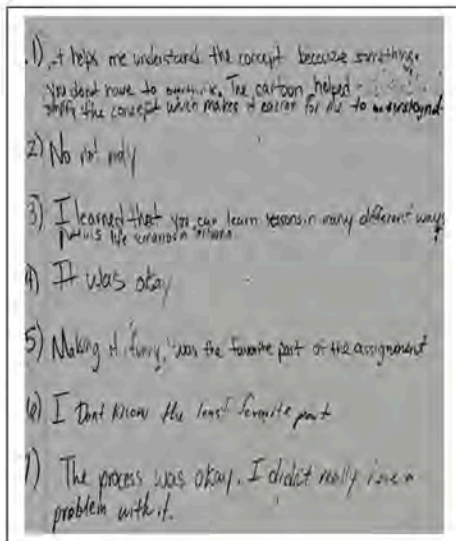 1) it helps me understand the concept because somethings
you dont have to overthink. The cartoon helped
the concept which makes it easier for me to understand
2) No not really
3) I learned that you can learn lessons in many different ways
life
4) It was okay
5) Making it funny, was the favorite part of the assignment
6) I Dont know the least favorite part
7) The process was okay. I didn't really have a
problem with it.